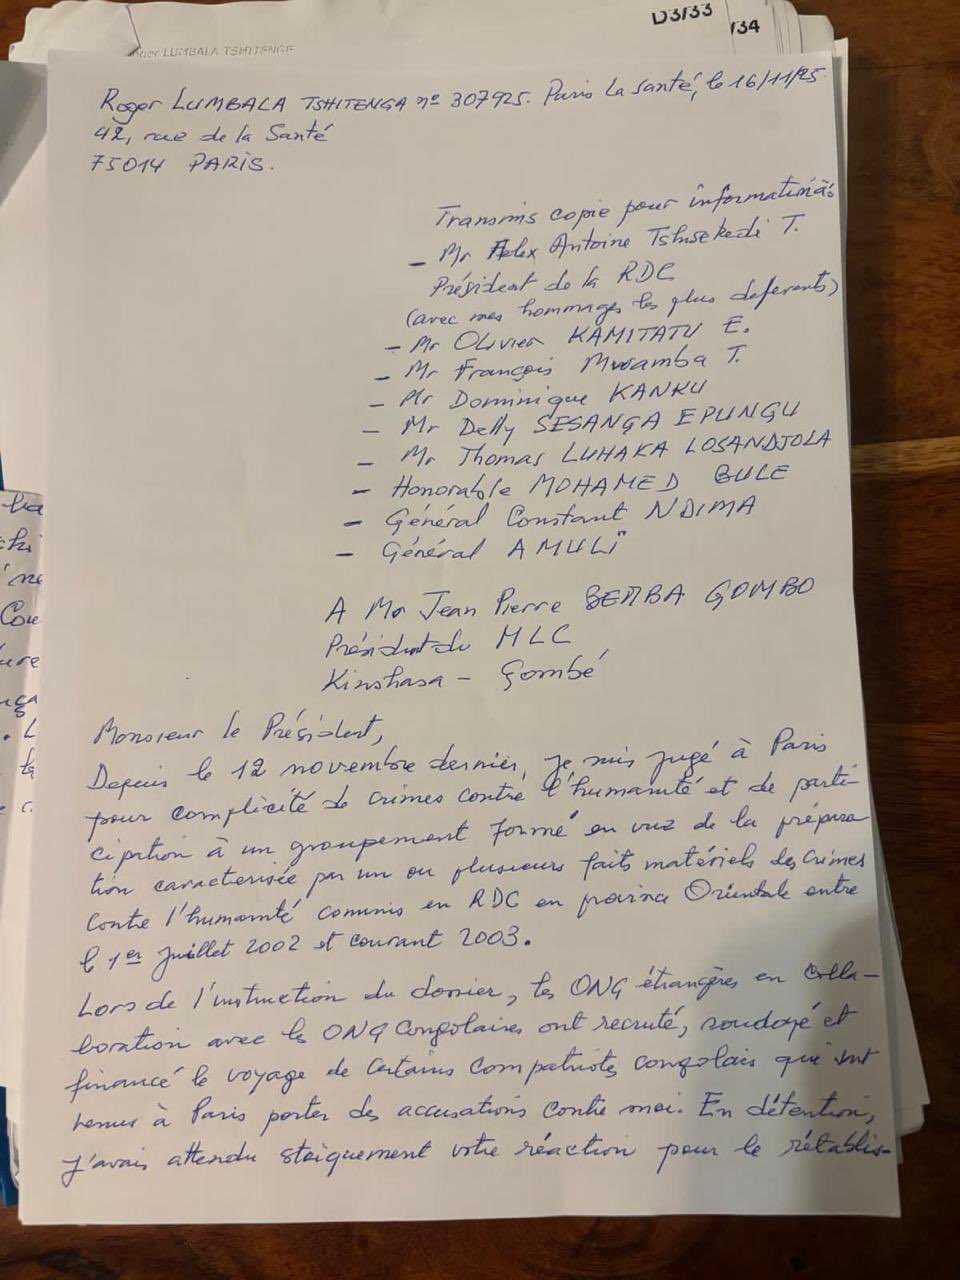 D3/33
/34
oger LUMBALA TSHITENGE
Roger LUMBALA TSHITENGA nº 307925. Paris La Santé, le 16/11/25.
42, rue de la Santé
75014 PARIS.
Transmis copie pour information à:
- Mr Felix Antoine Tshisekedi T.
Président de la RDC
(avec mes hommages les plus deferents)
- Mr Olivier KAMITATU E.
- Mr François Mwamba T.
- Mr Dominique KANKU
- Mr Delly SESANGA EPUNGU
- Mr Thomas LUHAKA LOSANDJOLA
- Honorable MOHAMED BULE
- Général Constant NDIMA
- Général AMULI
A Mr Jean Pierre BEMBA GOMBO
Président du MLC
Kinshasa - Gombé
Monsieur le Président,
Depuis le 12 novembre dernier, je suis jugé à Paris
pour complicité de crimes contre l'humanité et de parti-
cipation à un groupement formé en vue de la prépara
tion caracterisée par un ou plusieurs faits matériels des crimes
contre l'humanité commis en RDC en province Orientale entre
le 1er Juillet 2002 et courant 2003.
Lors de l'instruction du dossier, les ONG étrangères en colla-
boration avec les ONG Congolaires ont recruté, soudoyé et
financé le voyage de certains compatriotes congolais qui sont
venus à Paris porter des accusations contre moi. En détention,
j'avais attendu stoiquement votre réaction pour le rétablis-